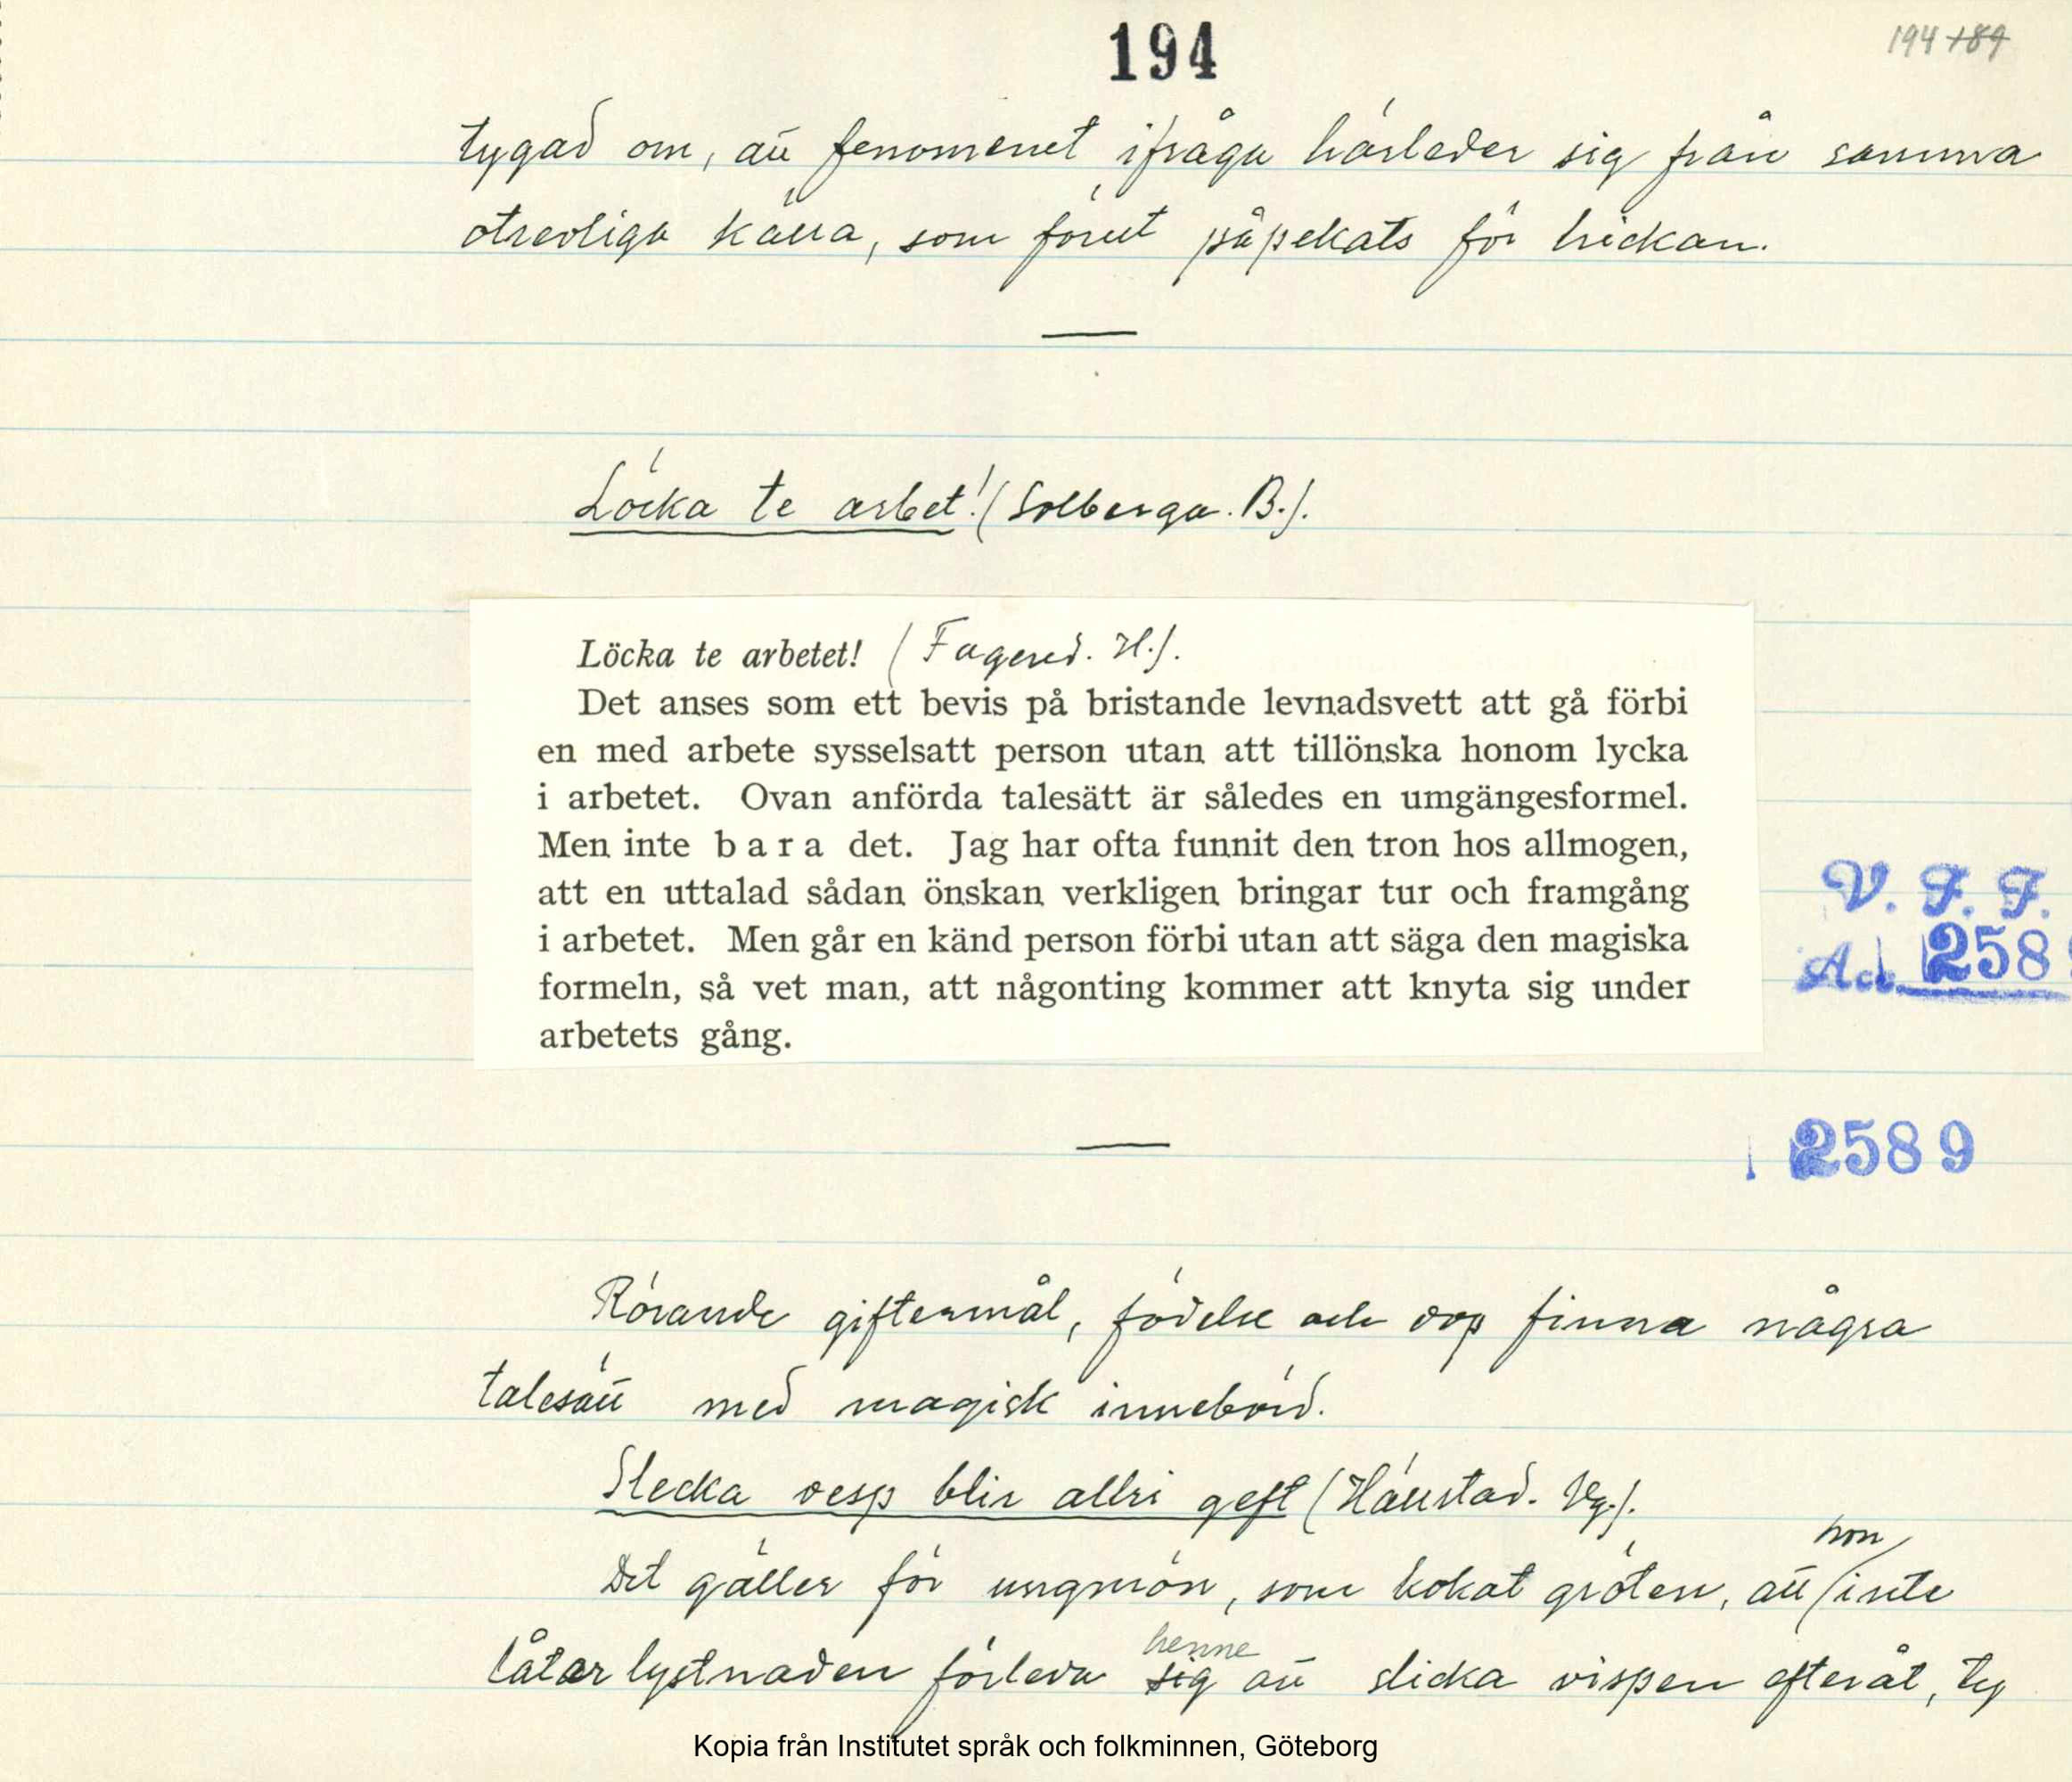 194
194 189
tygad om, att fenomenet ifråga härleder sig från samma
otrevliga källa, som förut påpekats för hickan.
Löcka te arbet! (Solberga. B.).
Löcka te arbetet! (Fagered. H.).
Det anses som ett bevis på bristande levnadsvett att gå förbi
en med arbete sysselsatt person utan att tillönska honom lycka
i arbetet. Ovan anförda talesätt är således en umgängesformel.
Men inte bara det. Jag har ofta funnit den tron hos allmogen,
att en uttalad sådan önskan verkligen bringar tur och framgång
i arbetet. Men går en känd person förbi utan att säga den magiska
formeln, så vet man, att någonting kommer att knyta sig under
arbetets gång.
V. F. F.
Acc. 258
2589
Rörande giftermål, födelse och dop finna några
talesätt med magisk innebörd.
Slecka vesp blir allri geft (Hällstad. Vg.).
hon
Det gäller för ungmön, som kokat gröten, att inte
henne
låtar lystnaden förleda sig att slicka vispen efteråt, ty
Kopia från Institutet språk och folkminnen, Göteborg